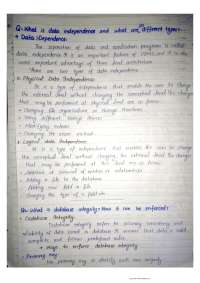 Q. What is data independence and what are its different types?
→ Data Independence:
The separation of data and application programs is called
data independence. It is an important feature of DBMS and it is the
most important advantage of three level architecture.
There are two types of data independence.
Physical Data Independence:
It is a type of independence that enable the user to change
the internal level without changing the conceptual level. The changes
that may be performed at physical level are as follows:
• Changing file organization or storage structures
• Using different storage devices
• Modifying indexes
• Changing the access method.
Logical Data Independence:
It is a type of independence that enables the user to change
the conceptual level without changing the external level. The changes
that may be performed at this level are as follows:
• Addition or removal of entities or relationships
• Adding a file to the database
• Adding new field in a file
• Changing the type of a field etc.
Q. What is database integrity? How it can be enforced?
• Database Integrity:
Database integrity refers to accuracy consistency and
reliability of data stored in database. It ensures that data is valid
complete and follows predefined rules.
• Ways to enforce database integrity:
• Primary key:
Use primary key to identify each row uniquely.